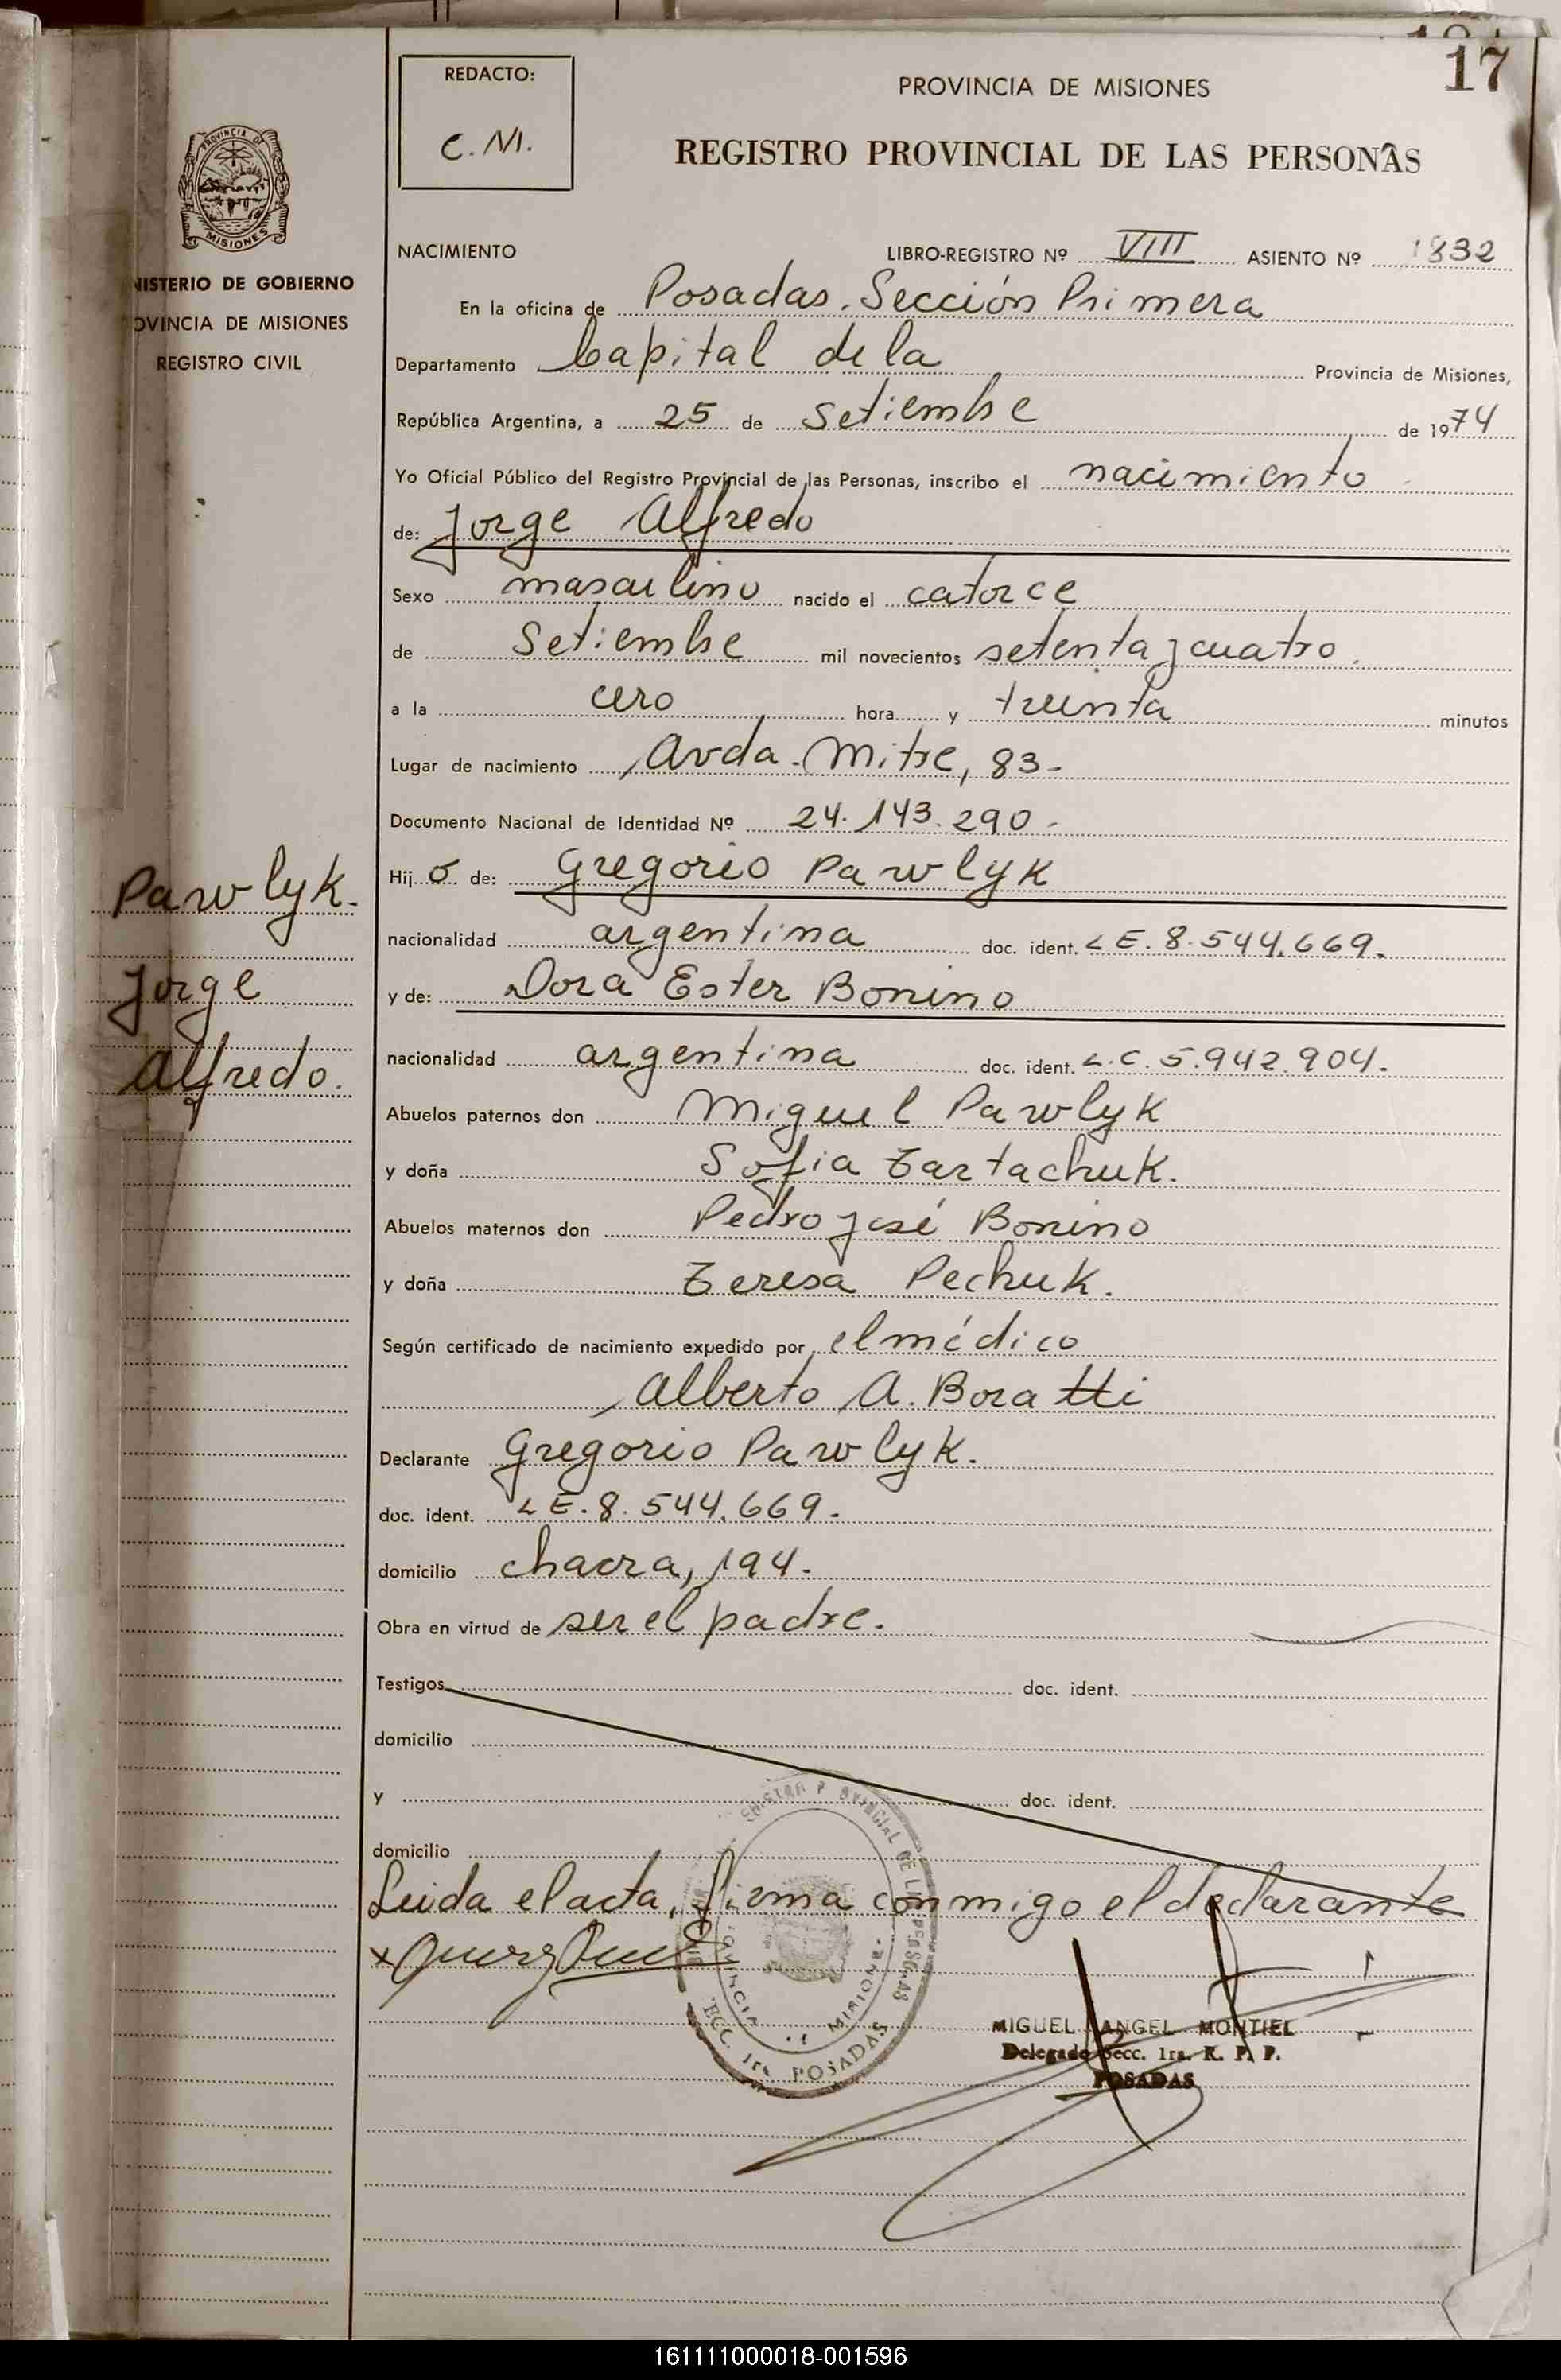 17
REDACTO:
C. M.
PROVINCIA DE MISIONES
REGISTRO PROVINCIAL DE LAS PERSONAS
PROVINCIA DE
MISIONES
NISTERIO DE GOBIERNO
OVINCIA DE MISIONES
REGISTRO CIVIL
NACIMIENTO LIBRO-REGISTRO Nº VIII ASIENTO Nº 1832
En la oficina de Posadas. Sección Primera
Departamento Capital de la Provincia de Misiones,
República Argentina, a 25 de Setiembre de 1974
Yo Oficial Público del Registro Provincial de las Personas, inscribo el nacimiento
de: Jorge Alfredo
Sexo masculino nacido el catorce
de Setiembre mil novecientos setenta y cuatro.
a la cero hora y treinta minutos
Lugar de nacimiento Avda. Mitre, 83-
Documento Nacional de Identidad Nº 24.143.290-
Hij o de: Gregorio Pawlyk
Pawlyk.
Jorge
Alfredo.
nacionalidad argentina doc. ident. L E. 8.544.669.
y de: Dora Ester Bonino
nacionalidad argentina doc. ident. L.C. 5.942.904.
Abuelos paternos don Miguel Pawlyk
y doña Sofia Tartachuk.
Abuelos maternos don Pedro José Bonino
y doña Teresa Pechuk.
Según certificado de nacimiento expedido por el médico
Alberto A. Boratti
Declarante Gregorio Pawlyk.
doc. ident. L E. 8.544.669.
domicilio chacra, 194.
Obra en virtud de ser el padre.
Testigos doc. ident.
domicilio
y doc. ident.
domicilio
Leida el acta, firma conmigo el declarante
MIGUEL ANGEL MONTIEL
Delegado Secc. 1ra. R. P. P.
POSADAS
SECC. 1ra POSADAS
161111000018-001596